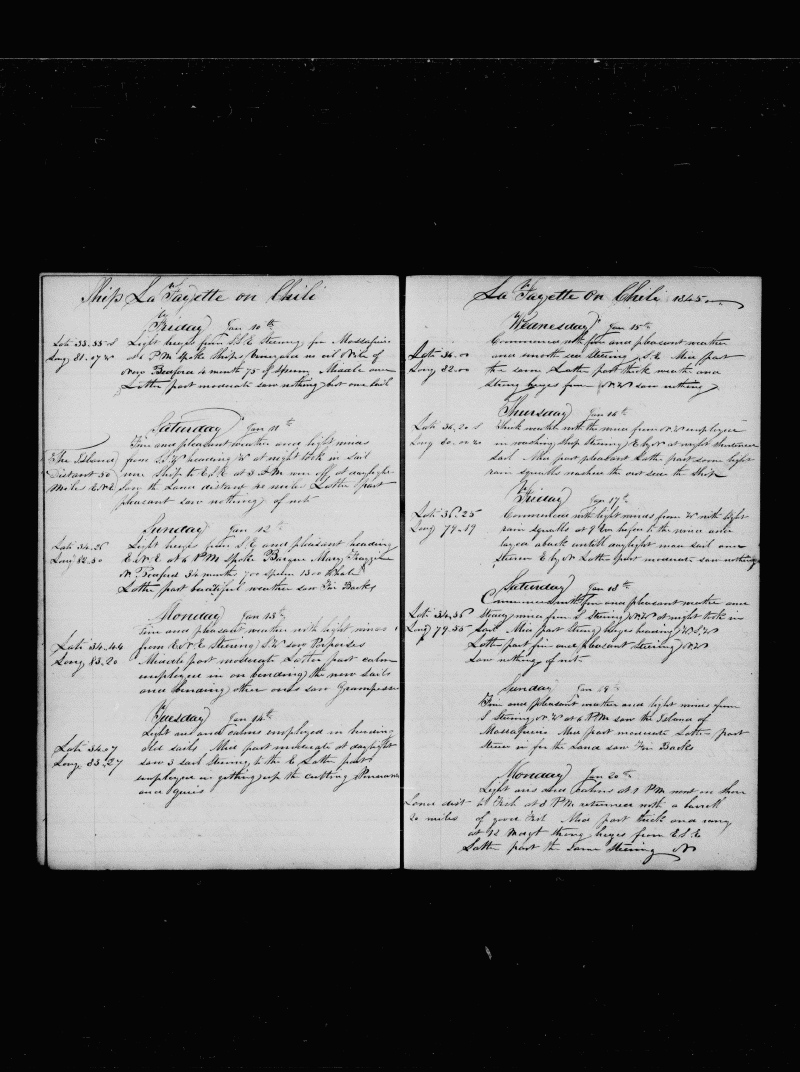 Ship La Fayette on Chili
Friday Jan 10th
Lati 33.55 S Light breezes from S.S.E Steering for Massafuira
Long 81.07 W at P.M. spoke Ships no oil
New Bedford 10 months 75 of Sperm Middle and
Latter part moderate saw nothing but one sail
Saturday Jan 11th
Fine and pleasant weather and light winds
The Island from heading W at night took in sail
Distant 30 wore Ship to E.S.E at 3 A.M. wore off at daylight
Miles saw the Land distant 20 mile Latter part
pleasant saw nothing of note
Sunday Jan 12th
Lati 34.26 Light breeze from S.E and pleasant heading
Long at 6 P.M Spoke Barque Mary Frazier
N Bedford 34 months 700 sperm 1300 Whale
Latter part beautiful weather saw Fin Backs
Monday Jan 13th
Fine and pleasant weather with light winds
Lati 34.44 from Steering S.W saw Porpoises
Long 83.20 Middle part moderate Latter part calm
employed in on bending the new sails
and bending other ones saw Grampuses
Tuesday Jan 14th
Light airs and calms employed in bending
Lati 34.07 old sails Mid part moderate at daylight
Long 83.27 saw 3 sail steering to the E Latter part
employed in getting up the cutting
and guies
La Fayette on Chili 1845
Wednesday Jan 15th
Commences with fine and pleasant weather
Lati 36.00 and smooth sea steering S.E Mid part
Long 82.00 the same Latter part thick weather and
strong breezes from saw nothing
Thursday Jan 16th
Lati 36.20 S Thick weather with the winds from employed
Long 80. in washing ship steering E by N at night shortened
sail Mid part pleasant Latter part some light
rain squalls washed the out side the Ship
Friday Jan 17th
Lati 36.25 Commences with light winds from W with light
Long 79.19 rain squalls at 7 P.M. to the wind and
layed aback untill daylight made sail and
steered E by N Latter part moderate saw nothing
Saturday Jan 18th
Commences with fine and pleasant weather and
Lati 34.56 steady winds from S Steering at night took in
Long 79.55 Sail Mid part Strong breezes heading W.S.W
Latter part fine and pleasant Steering
Saw nothing of note
Sunday Jan 19th
Fine and pleasant weather and light winds from
S Steering N.W at 6 P.M saw the Island of
Massafuira Mid part moderate Latter part
steered in for the Land saw Fin Backs
Monday Jan 20th
Light airs and calms at 1 P.M went on shore
Land dist to Fish at 8 P.M returned with a barrell
20 miles of good Fish Mid part thick and rainy
at 12 strong breezes from E.S.E
Latter part the same steering N